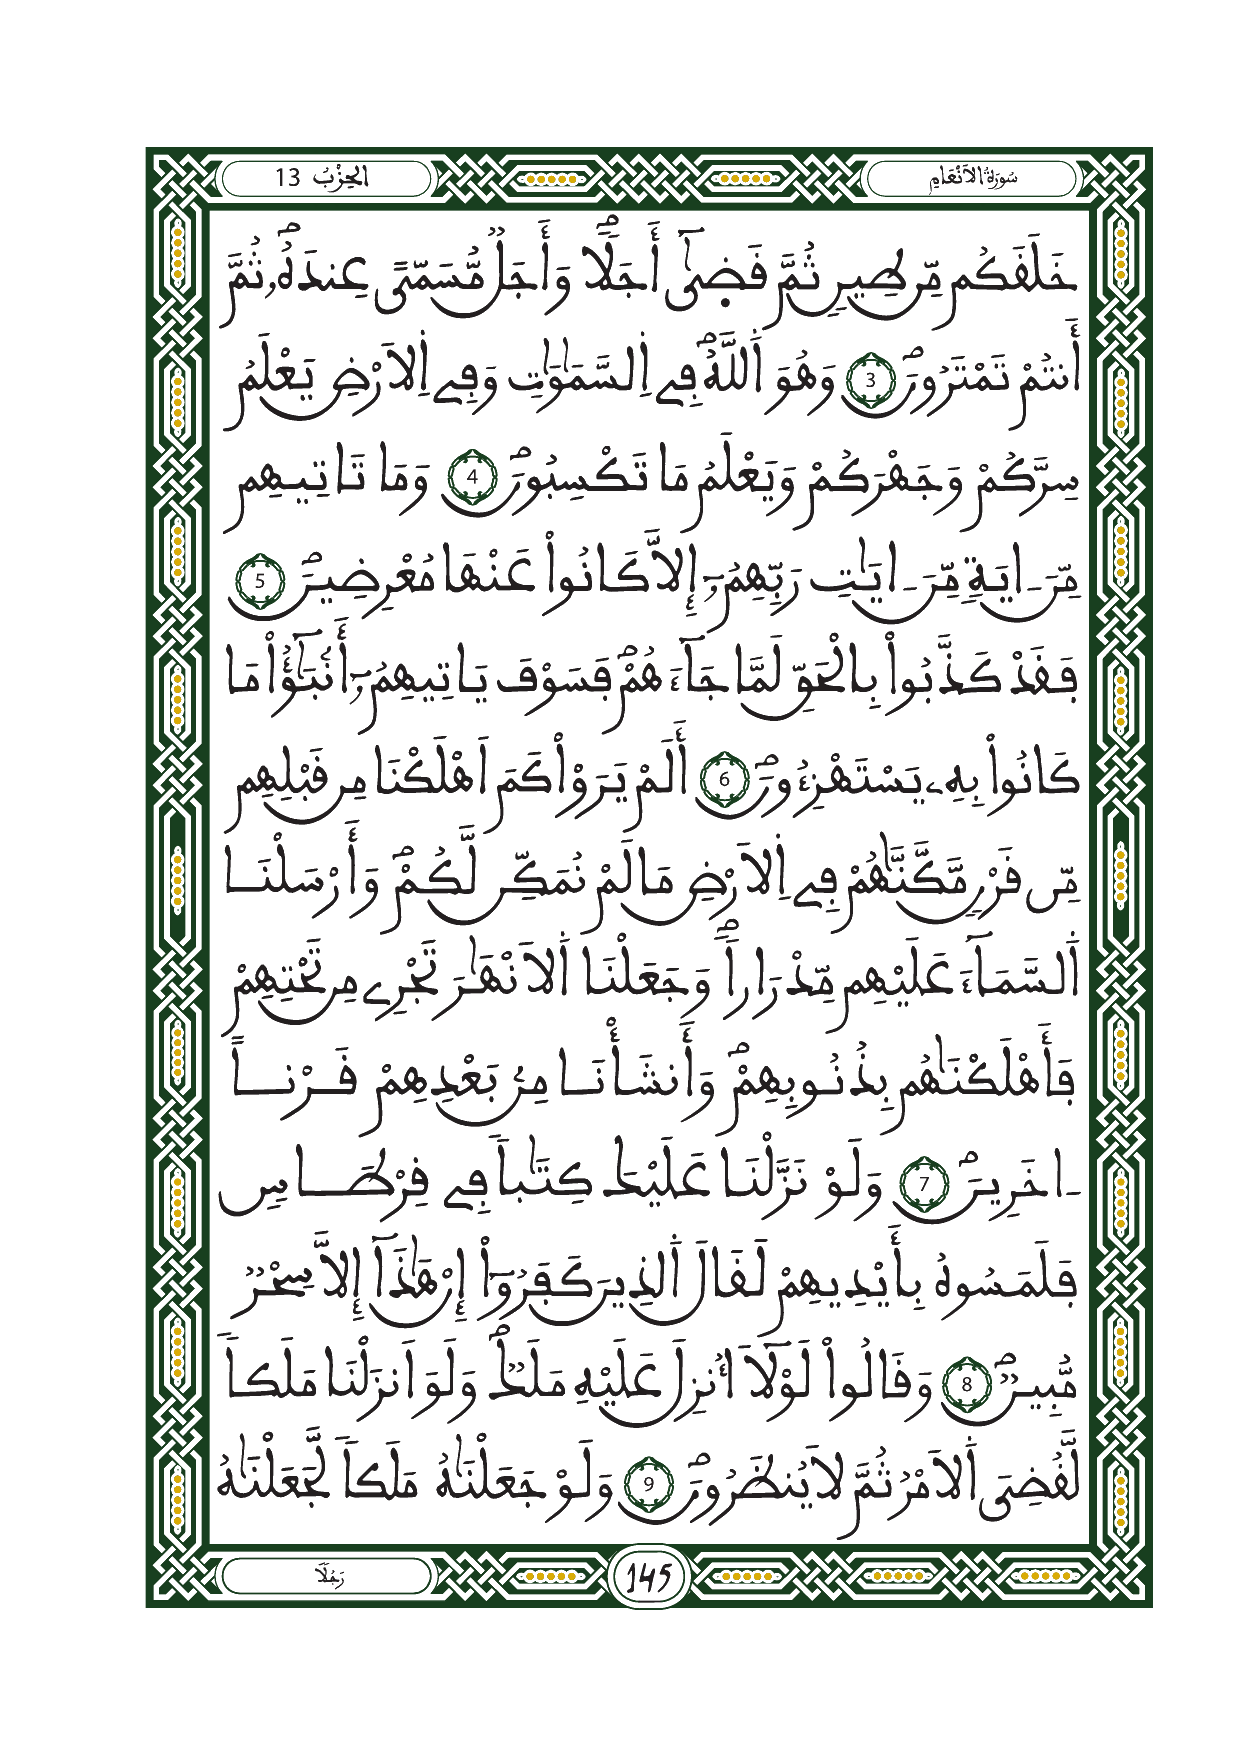 سُورَةُ الاَنْعَامِ
الحِزْبُ 13
خَلَقَكُم مِّن طِينٍ ثُمَّ قَضَىٰٓ أَجَلاً وَأَجَلٌ مُّسَمّىً عِندَهُۥ ثُمَّ
أَنتُمْ تَمْتَرُونَ 3 وَهُوَ اَ۬للَّهُ فِے اِ۬لسَّمَٰوَٰتِ وَفِے اِ۬لاَرْضِ يَعْلَمُ
سِرَّكُمْ وَجَهْرَكُمْ وَيَعْلَمُ مَا تَكْسِبُونَ 4 وَمَا تَاتِيهِم
مِّنَ ـ ايَةٍ مِّنَ ـ ايَٰتِ رَبِّهِمُۥٓ إِلاَّ كَانُواْ عَنْهَا مُعْرِضِينَ 5
فَقَدْ كَذَّبُواْ بِالْحَقِّ لَمَّا جَآءَهُمْ فَسَوْفَ يَاتِيهِمُۥٓ أَنۢبَٰٓؤُاْ مَا
كَانُواْ بِهِۦ يَسْتَهْزِءُونَ 6 أَلَمْ يَرَوْاْ كَمَ اَهْلَكْنَا مِن قَبْلِهِم
مِّن قَرْنٍ مَّكَّنَّٰهُمْ فِے اِ۬لاَرْضِ مَا لَمْ نُمَكِّن لَّكُمْ وَأَرْسَلْنَا
اَ۬لسَّمَآءَ عَلَيْهِم مِّدْرَاراً وَجَعَلْنَا اَ۬لاَنْهَٰرَ تَجْرِے مِن تَحْتِهِمْ
فَأَهْلَكْنَٰهُم بِذُنُوبِهِمْ وَأَنشَأْنَا مِنۢ بَعْدِهِمْ قَرْناً
ـ اخَرِينَ 7 وَلَوْ نَزَّلْنَا عَلَيْكَ كِتَٰباً فِے قِرْطَاسٍ
فَلَمَسُوهُ بِأَيْدِيهِمْ لَقَالَ اَ۬لذِينَ كَفَرُوٓاْ إِنْ هَٰذَآ إِلاَّ سِحْرٌ
مُّبِينٌ 8 وَقَالُواْ لَوْلَآ أُنزِلَ عَلَيْهِ مَلَكٌ وَلَوَ اَنزَلْنَا مَلَكاً
لَّقُضِىَ اَ۬لاَمْرُ ثُمَّ لاَ يُنظَرُونَ 9 وَلَوْ جَعَلْنَٰهُ مَلَكاً لَّجَعَلْنَٰهُ
رَجُلاً
145